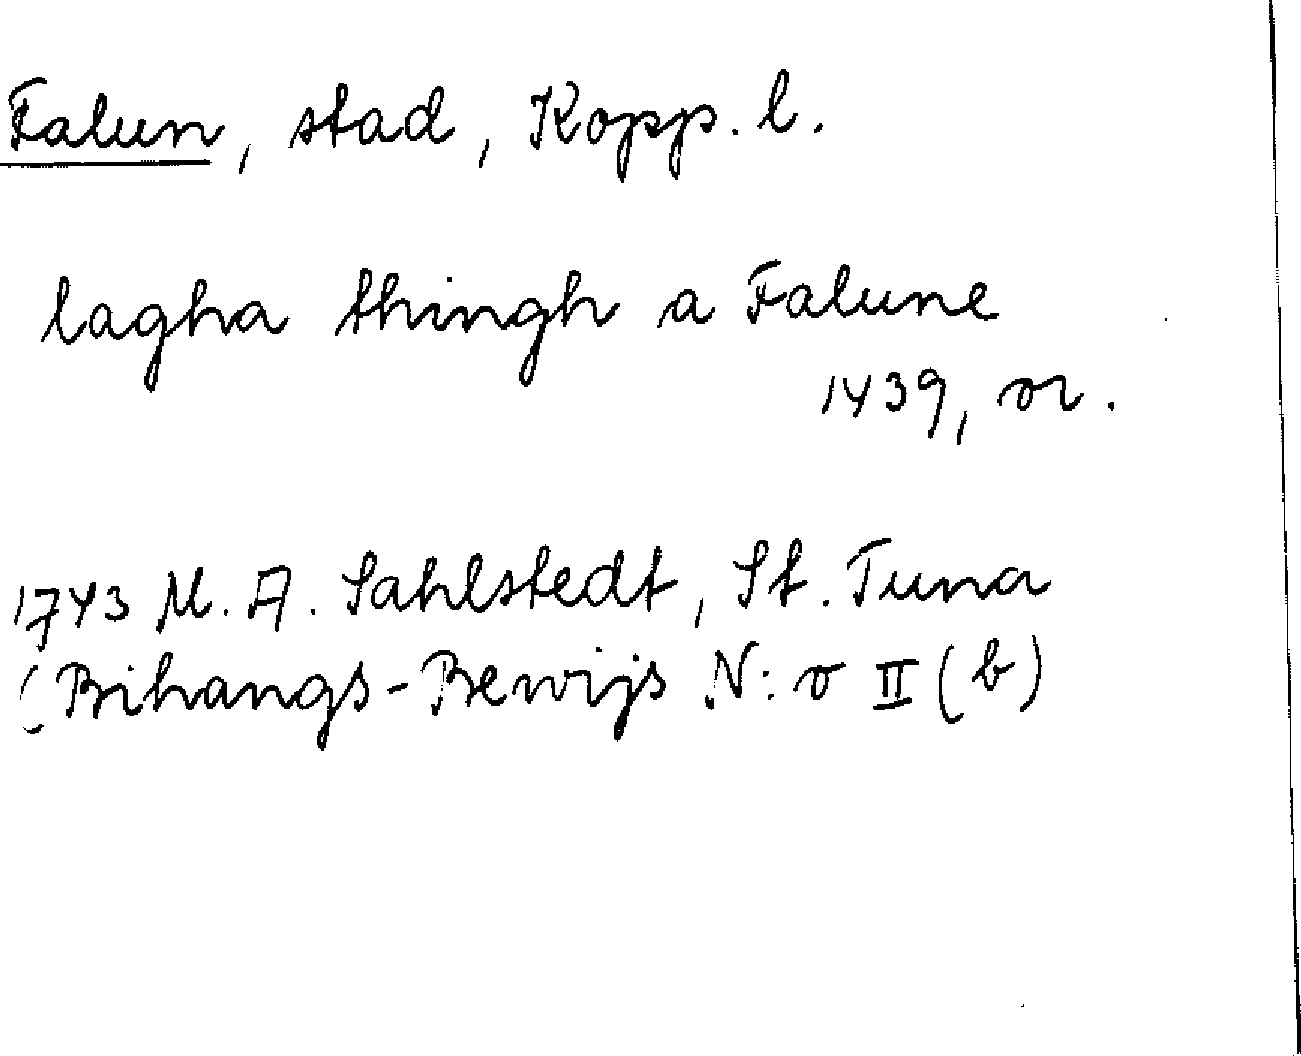 Falun, stad, Kopp. l.
lagha thingh a Falune
1439, or.
1743 M. A. Sahlstedt, St. Tuna
(Bihangs-Bewijs N:o II (b)